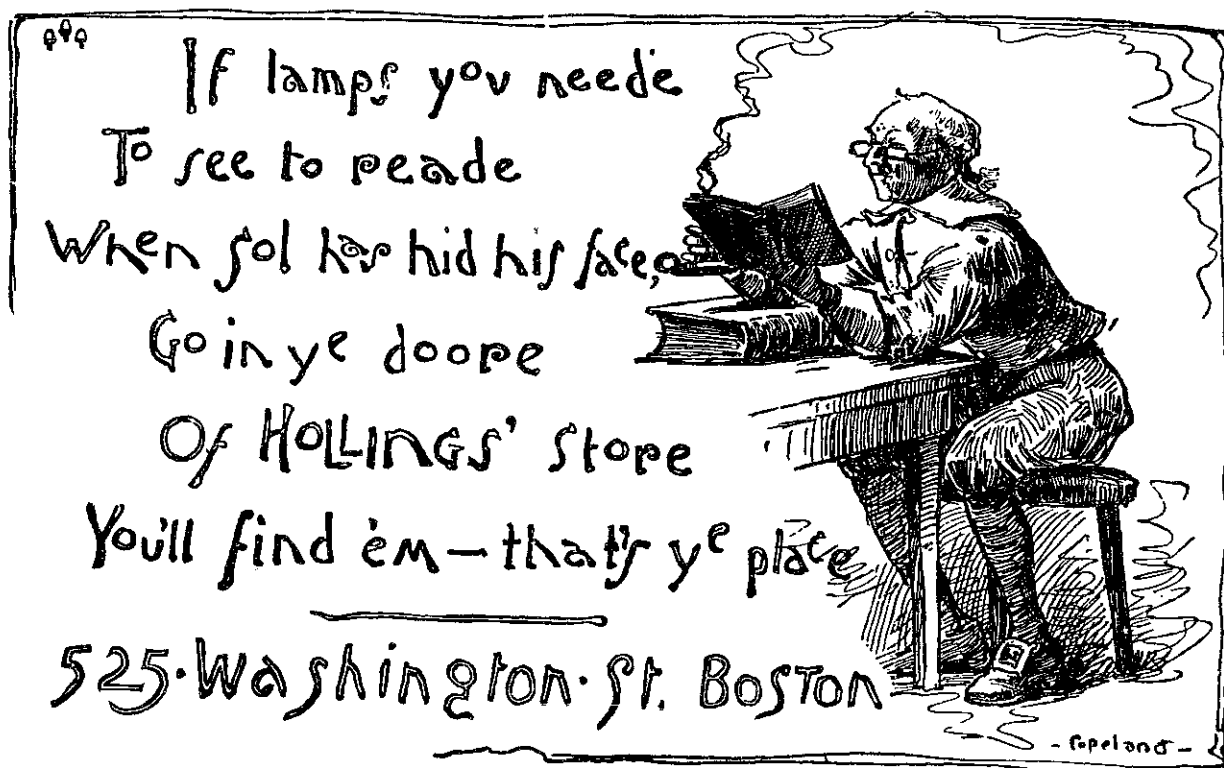 If lamps you neede
To see to reade
When Sol has hid his face,
Go in ye doore
Of HOLLINGS' Store
You'll find 'em — that's ye place
525·Washington·St. BOSTON
- Copeland -